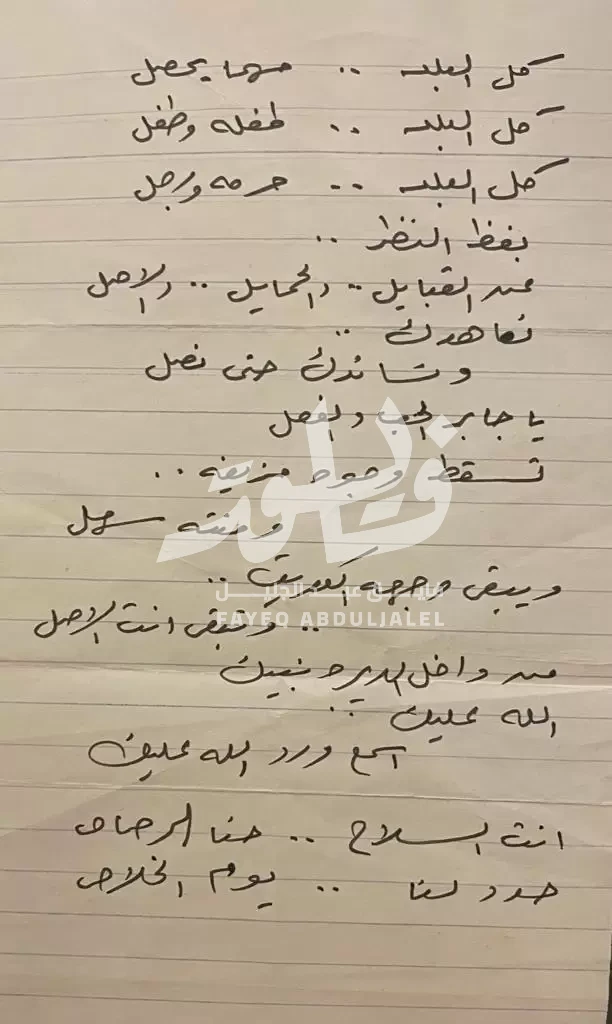 كل البلد .. مهما يحصل
كل البلد .. طفله وطفل
كل البلد .. حرمه ورجل
بغظ النظر ..
عن القبايل .. والحمايل .. والاصل
نعاهدك ..
ونساندك حتى نصل
يا جابر الحب والفصل
تسقط وجوه مزيفه ..
ومنته سهل
ويبقى وجهه الكويت ..
.. وتبقى انت الاصل
من داخل الديره نبيك
الله عليك ..
اسمع ورد الله عليك
انت السلاح .. حنا الرصاص
حدد لنا .. يوم الخلاص
فايق عبدالجليل
FAYEQ ABDULJALEL